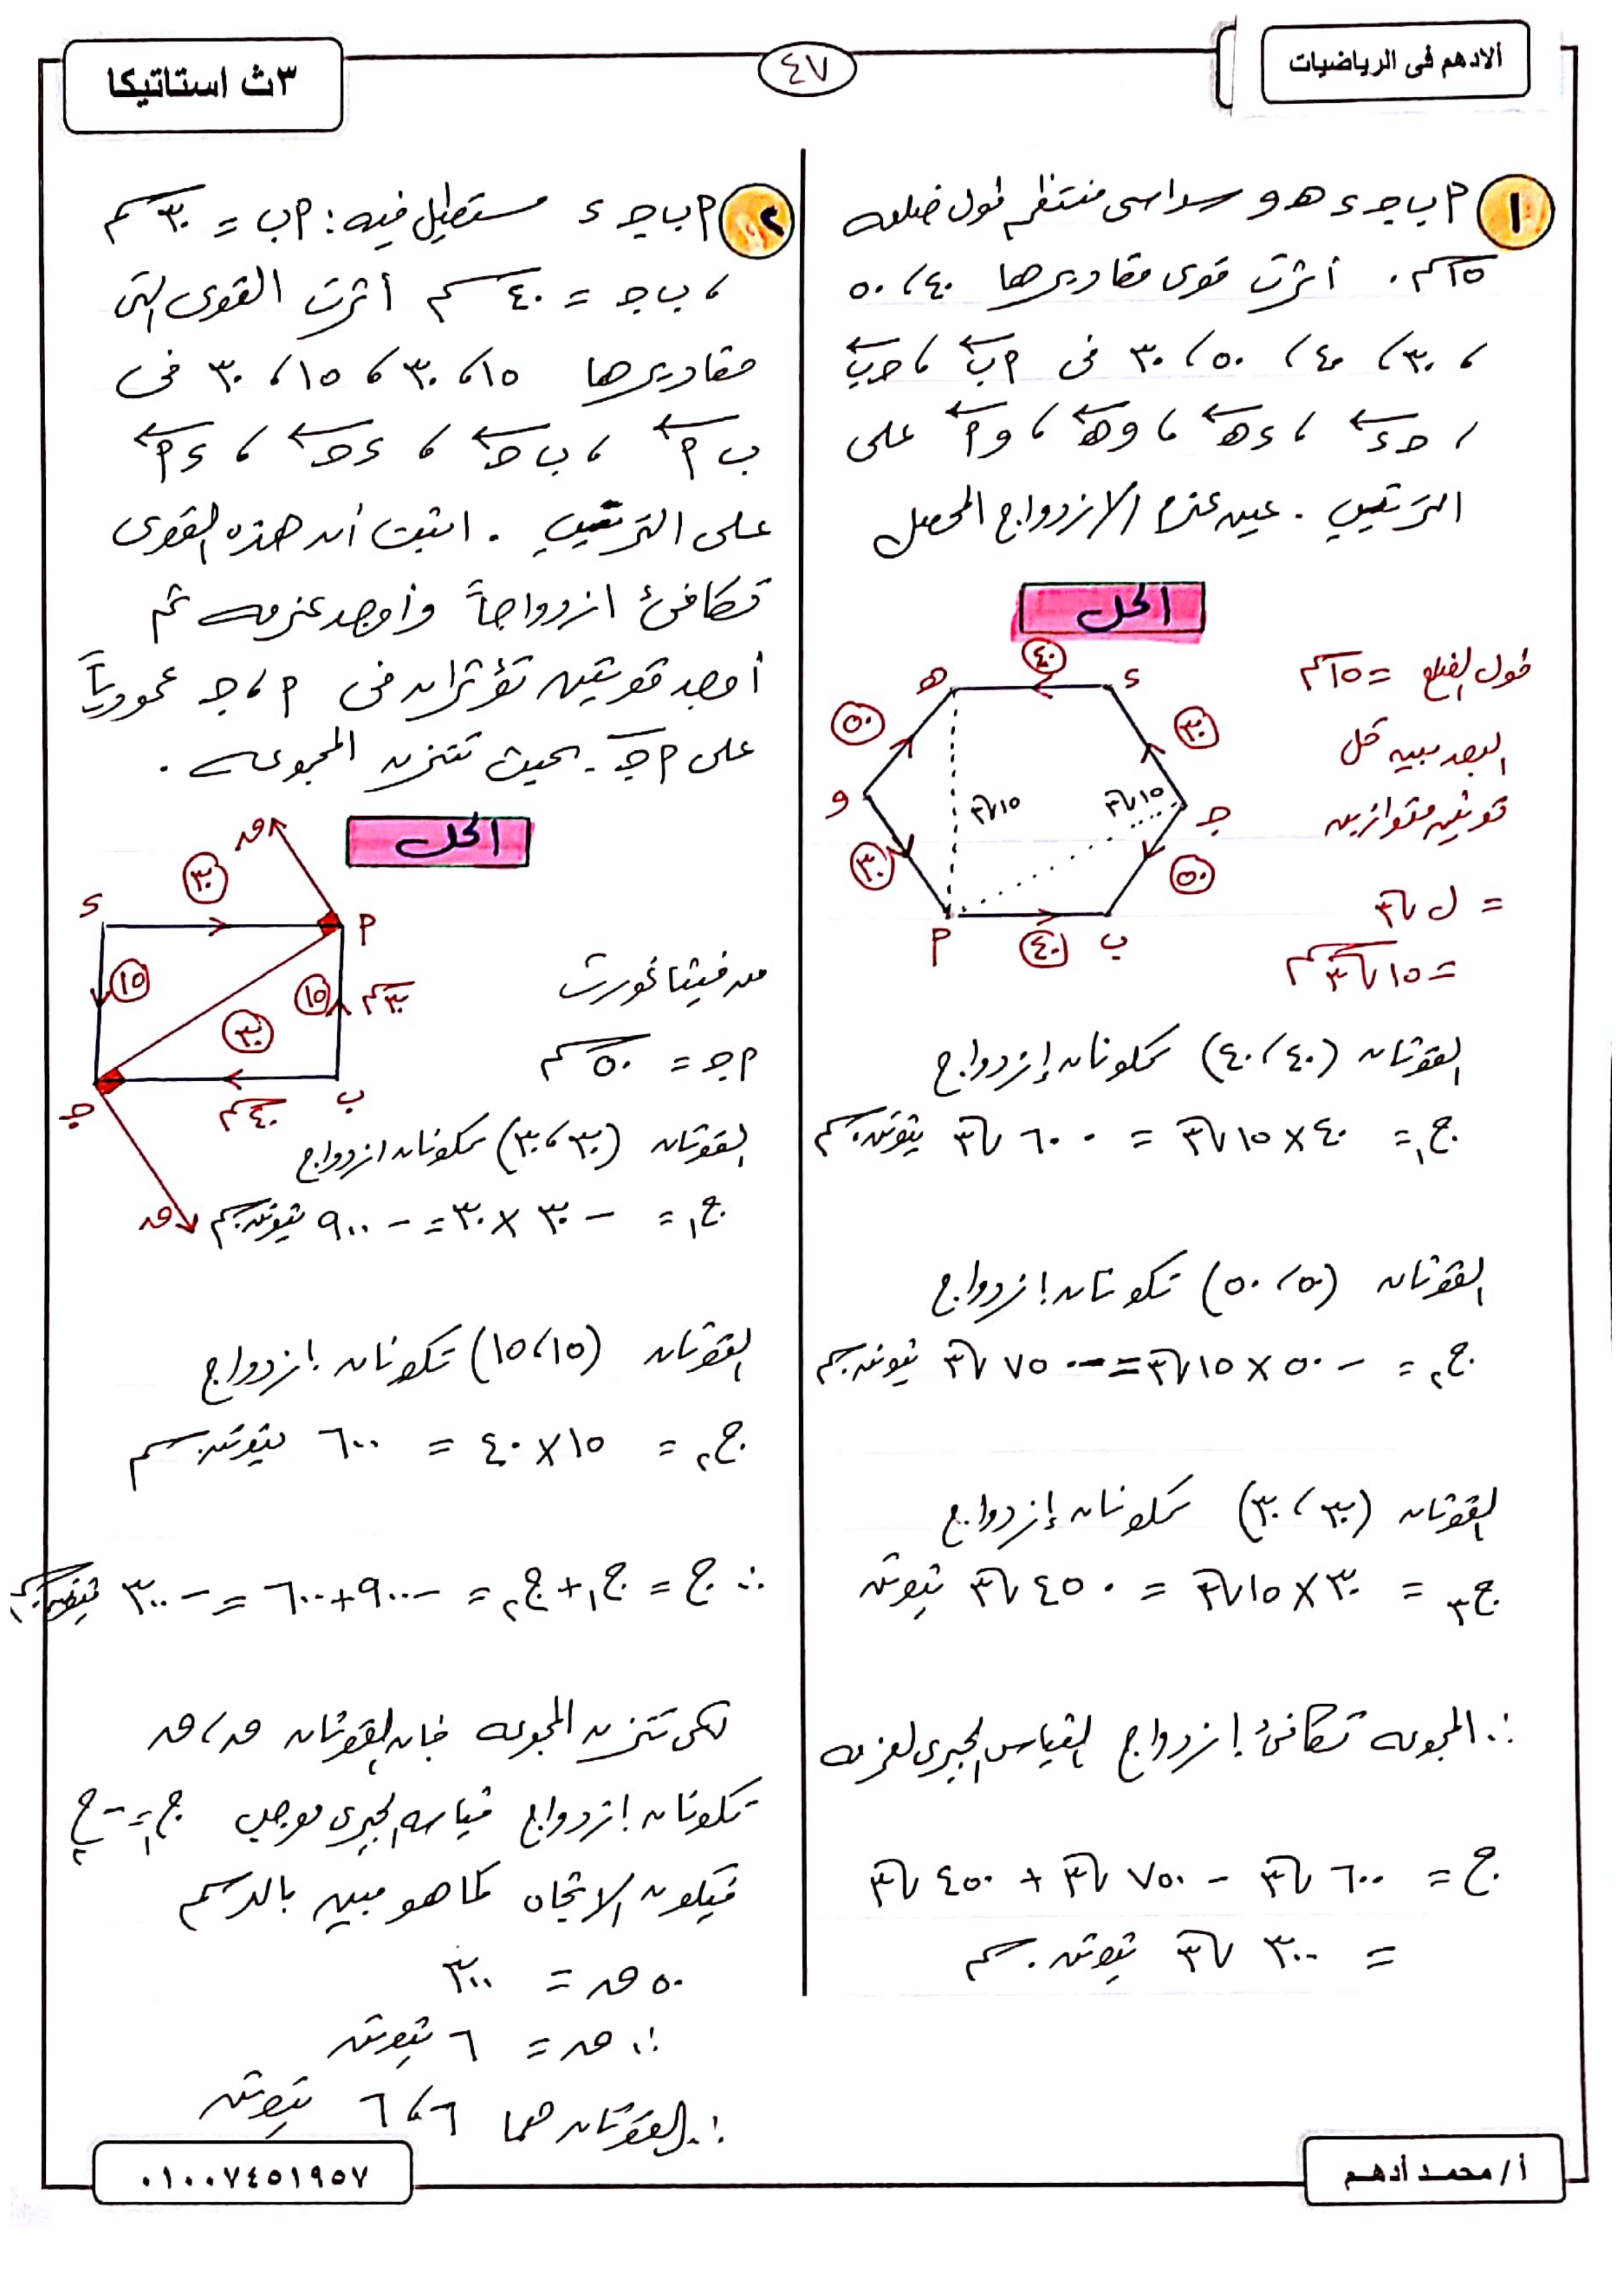 الادهم فى الرياضيات
٤٧
٣ث استاتيكا
١
م ب جـ ء هـ و سداسى منتظم طول ضلعه
١٥ سم . أثرت قوى مقاديرها ٤٠ ، ٥٠
، ٣٠ ، ٤٠ ، ٥٠ ، ٣٠ فى م ب ، جـ ب
، جـ ء ، ء هـ ، و هـ ، و م على
الترتيب . عين عزم الازدواج المحصل
الحل
طول الضلع = ١٥ سم
البعد بين كل
قوتين متوازيتين
= ل √٣
= ١٥ √٣ سم
هـ ٤٠ ء
٥٠ ٣٠
و ١٥√٣ ١٥√٣ جـ
٣٠ ٥٠
م ٤٠ ب
القوتان (٤٠ ، ٤٠) تكونان إزدواج
ج١ = ٤٠ × ١٥√٣ = ٦٠٠ √٣ نيوتن.سم
القوتان (٥٠ ، ٥٠) تكونان إزدواج
ج٢ = - ٥٠ × ١٥√٣ = - ٧٥٠ √٣ نيوتن.سم
القوتان (٣٠ ، ٣٠) تكونان إزدواج
ج٣ = ٣٠ × ١٥√٣ = ٤٥٠ √٣ نيوتن
∴ المجموعة تكافئ إزدواج القياس الجبرى لعزمه
ج = ٦٠٠ √٣ - ٧٥٠ √٣ + ٤٥٠ √٣
= ٣٠٠ √٣ نيوتن . سم
٢
م ب جـ ء مستطيل فيه : م ب = ٣٠ سم
، ب جـ = ٤٠ سم أثرت القوى التى
مقاديرها ١٥ ، ٣٠ ، ١٥ ، ٣٠ فى
ب م ، ب جـ ، ء جـ ، ء م
على الترتيب . اثبت أن هذه القوى
تكافئ ازدواجاً وأوجد عزمه ثم
أوجد قوتين تؤثران فى م ، جـ عمودياً
على م جـ بحيث تتزن المجموعة .
الحل
ق
٣٠
ء م
١٥ ١٥ ٣٠ سم
٣٠
جـ ٤٠ سم ب
ق
من فيثاغورث
م جـ = ٥٠ سم
القوتان (٣٠ ، ٣٠) تكونان ازدواج
ج١ = - ٣٠ × ٣٠ = - ٩٠٠ نيوتن.سم
القوتان (١٥ ، ١٥) تكونان ازدواج
ج٢ = ١٥ × ٤٠ = ٦٠٠ نيوتن.سم
∴ ج = ج١ + ج٢ = - ٩٠٠ + ٦٠٠ = - ٣٠٠ نيوتن.سم
لكى تتزن المجموعة فإن القوتان ق ، ق
تكونان إزدواج قياسه الجبرى موجب ج١ = - ج٢
فيكون الاتجاه كما هو مبين بالرسم
٥٠ ق = ٣٠٠
∴ ق = ٦ نيوتن
∴ القوتان هما ٦ ، ٦ نيوتن
أ/ محمد أدهم
٠١٠٠٧٤٥١٩٥٧